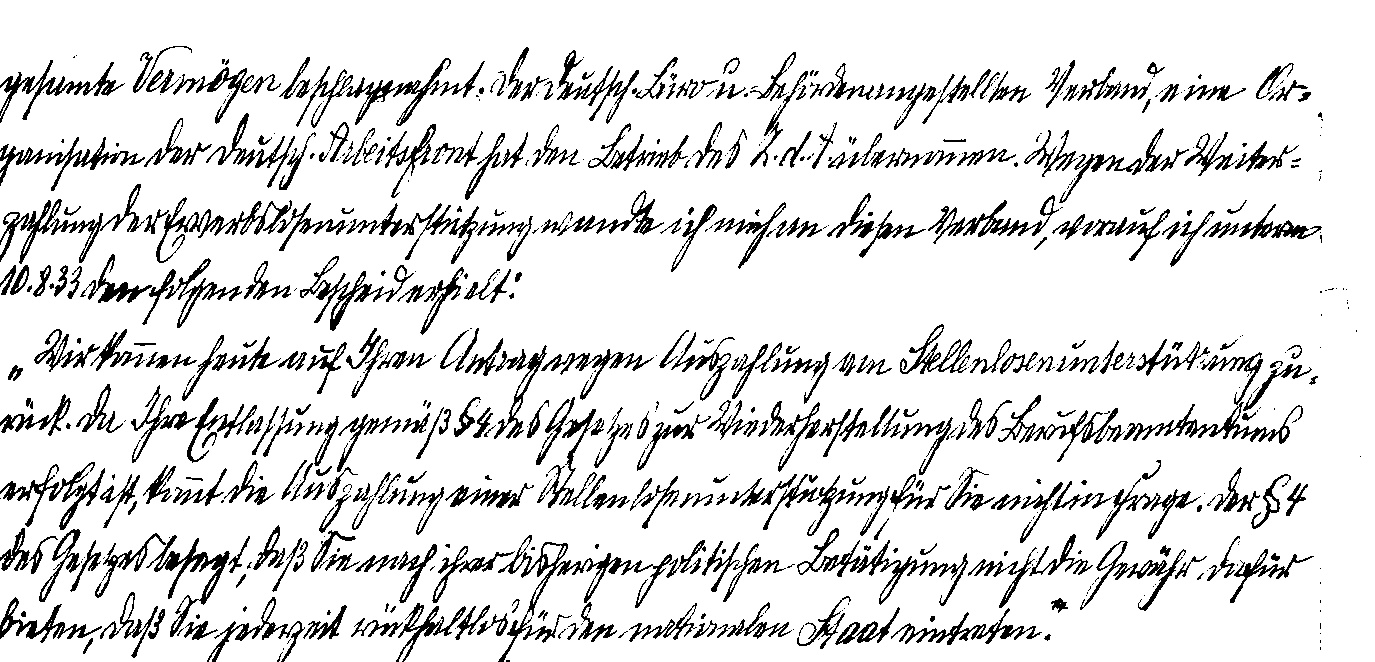 gesamte Vermögen beschlagnahmt. Der Deutsch. Büro u. Behördenangestellten Verband, eine Or=
ganisation der Deutsch. Arbeitsfront hat den Betrieb des Z.d.A übernom̅en. Wegen der Weiter=
zahlung der Erwerbslosenunterstützung wandte ich mich an diesen Verband, worauf ich unterm
10.8.33 den folgenden Bescheid erhielt:
„Wir kom̅en heute auf Ihren Antrag wegen Auszahlung von Stellenlosenunterstützung zu=
rück. Da Ihre Entlassung gemäß § 4 des Gesetzes zur Wiederherstellung des Berufsbeamtentums
erfolgt ist, kom̅t die Auszahlung einer Stellenlosenunterstützung für Sie nicht in Frage. Der § 4
des Gesetzes besagt, daß Sie nach ihrer bisherigen politischen Betätigung nicht die Gewähr dafür
bieten, daß Sie jederzeit rückhaltlos für den nationalen Staat eintreten."